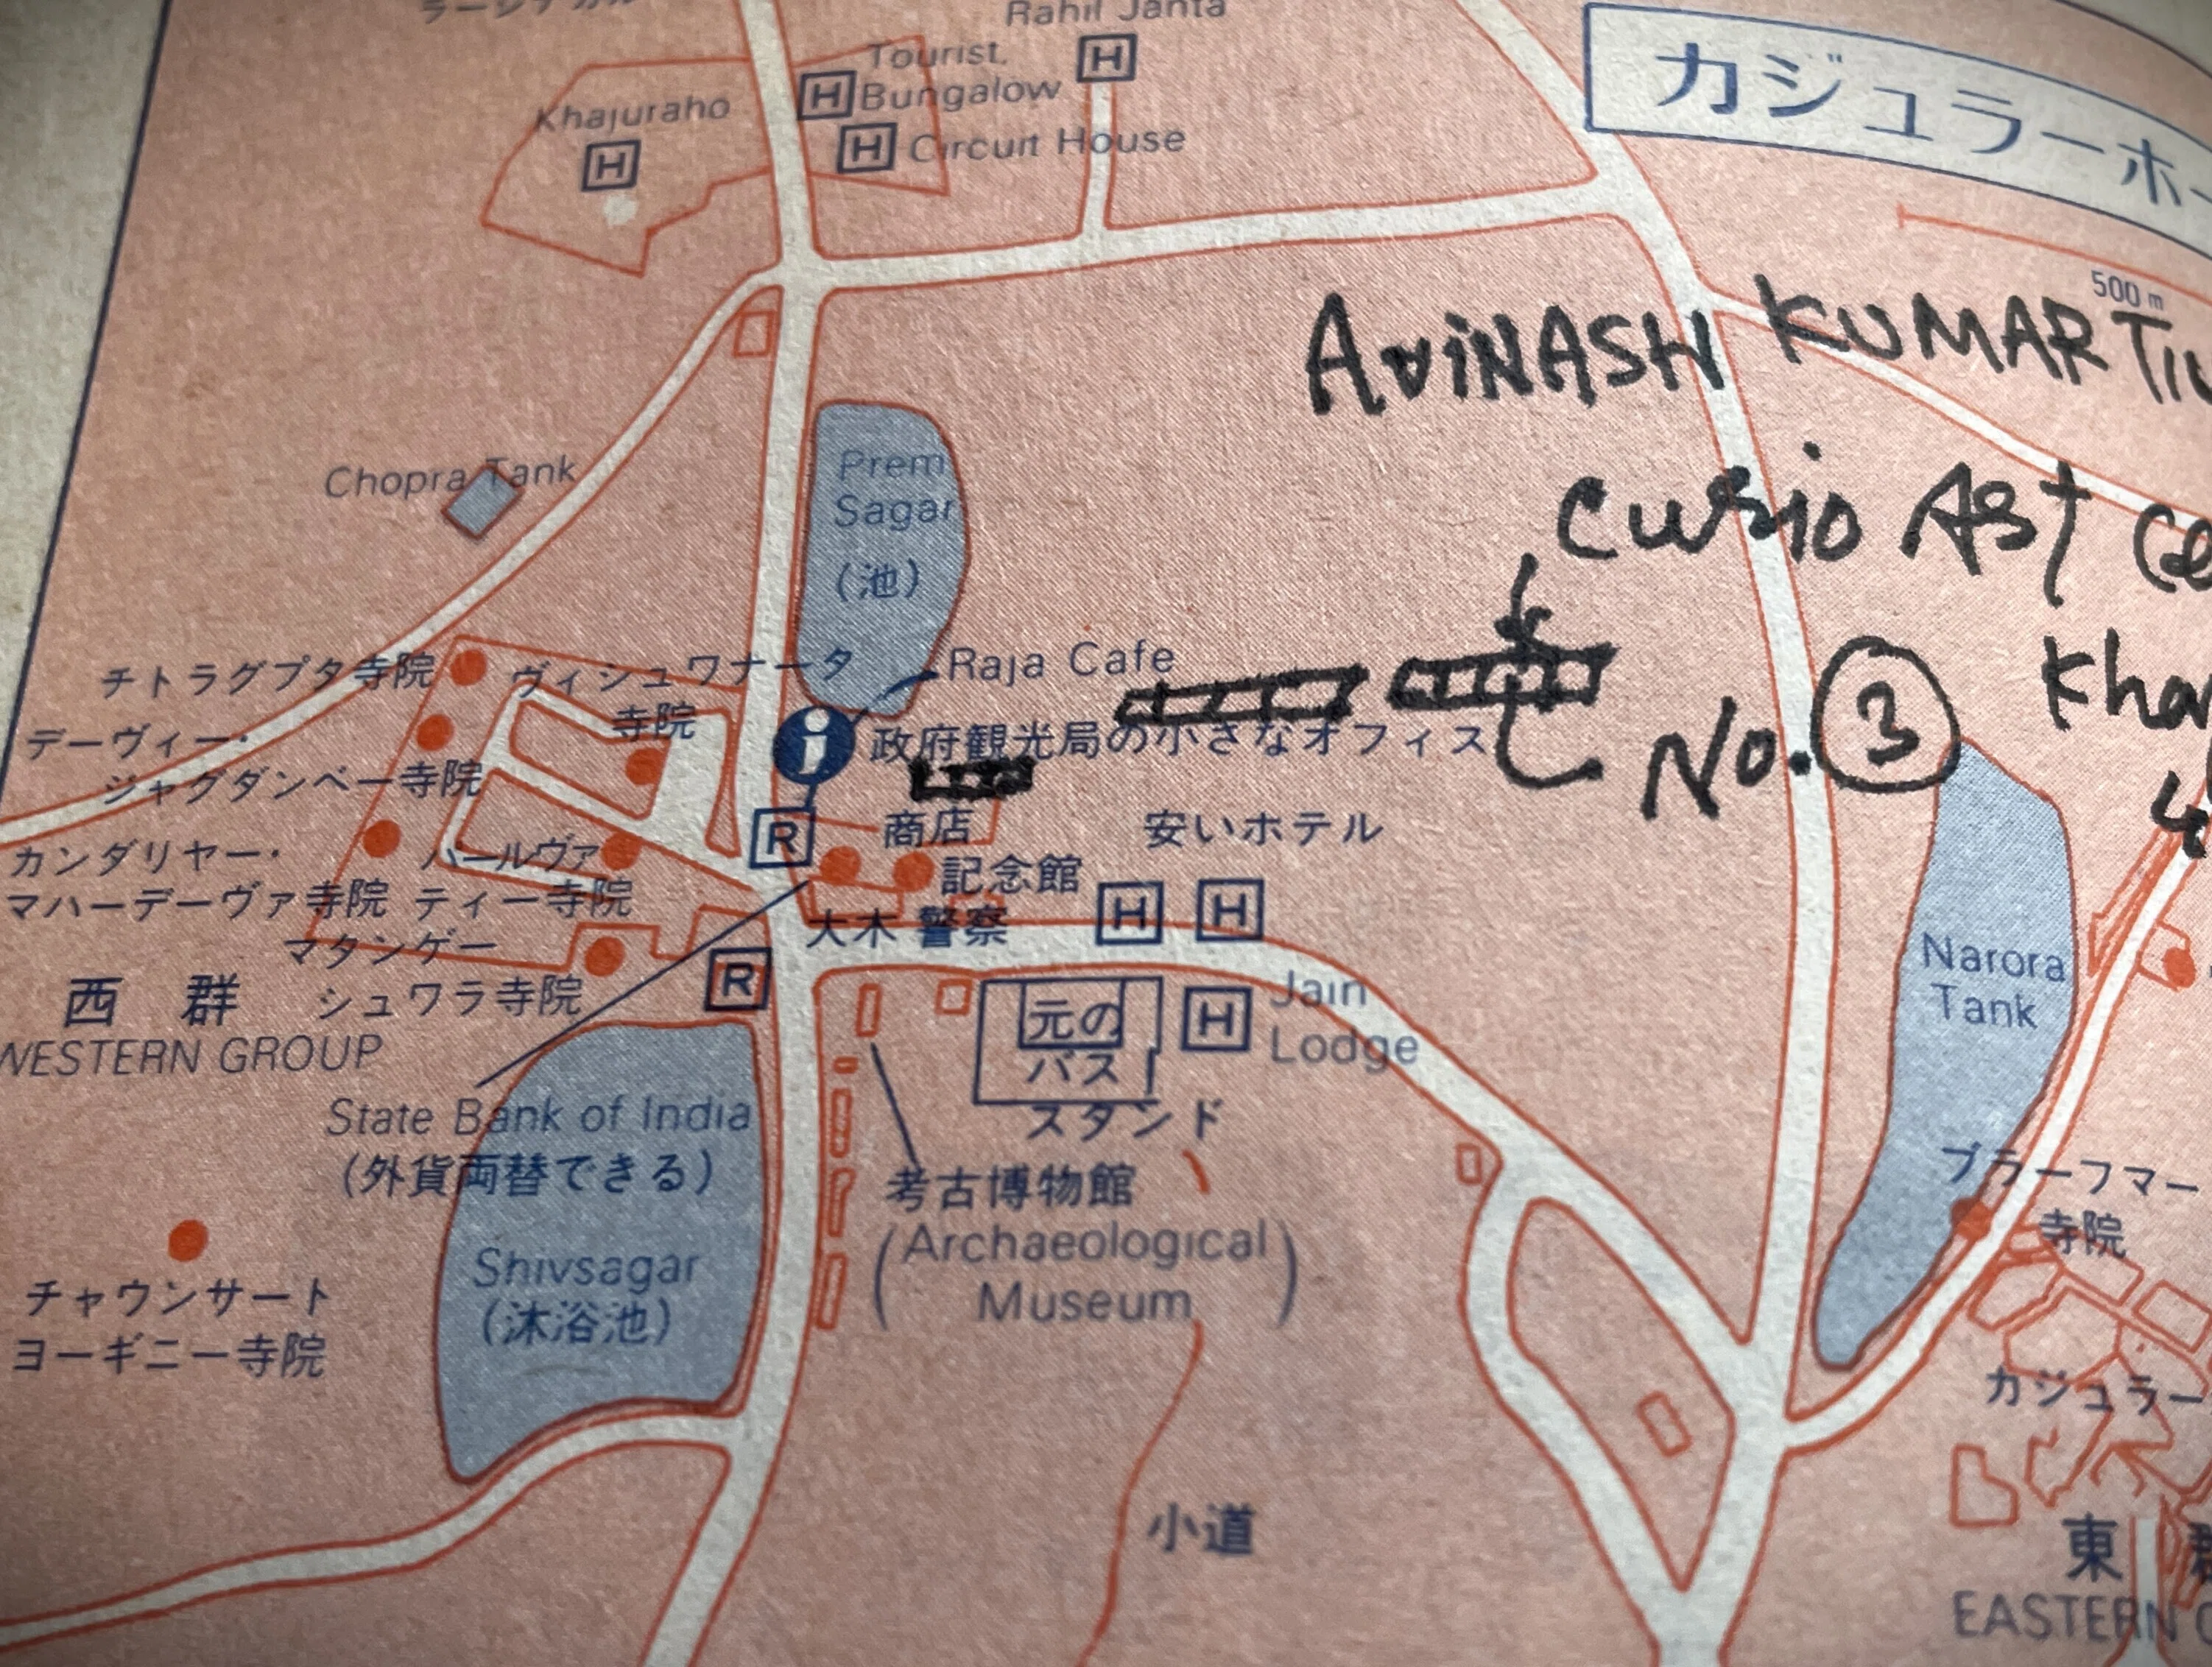 Rahil Janta
カジュラーホ
Tourist
H Bungalow
H
Khajuraho
H
H Circuit House
500 m
AviNASH KUMAR
Chopra Tank
Prem
Sagar
(池)
curio Art
Raja Cafe
チトラグプタ寺院
ヴィシュワナータ
寺院
デーヴィー・
ジャグダンベー寺院
i
政府観光局の小さなオフィス
No. 3
R
商店
安いホテル
カンダリヤー・
マハーデーヴァ寺院
パールヴァ
ティー寺院
記念館
大木 警察
H H
マタンゲー
シュワラ寺院
西 群
WESTERN GROUP
R
元の
バス
スタンド
H Jain
Lodge
Narora
Tank
State Bank of India
(外貨両替できる)
考古博物館
(Archaeological
Museum)
ブラーフマー
寺院
Shivsagar
(沐浴池)
チャウンサート
ヨーギニー寺院
カジュラー
小道
東
EASTERN